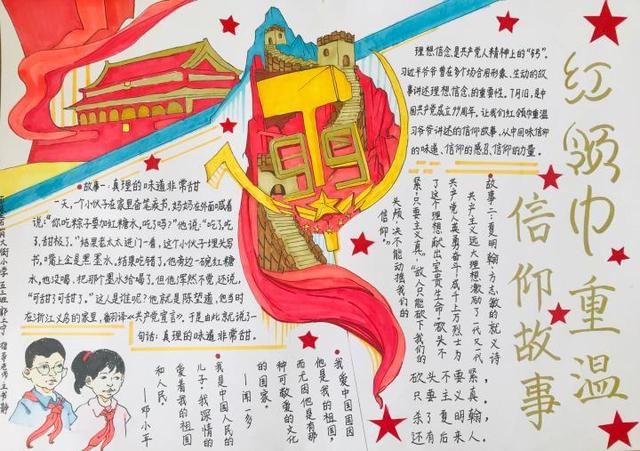 红领巾重温
信仰故事
理想信念,是共产党人精神上的“钙”。
习近平爷爷曾在多个场合用形象、生动的故
事讲述理想、信念的重要性。7月1日,是中
国共产党成立99周年,让我们红领巾重温
习爷爷讲述的信仰故事,从中回味信仰
的味道、信仰的感召、信仰的力量。
99
故事一:真理的味道非常甜
一天,一个小伙子在家里奋笔疾书,妈妈在外面喊着
说:“你吃粽子要加红糖水,吃了吗?”他说:“吃了吃
了,甜极了。”结果老太太进门一看,这个小伙子埋头写
书,嘴上全是黑墨水。结果吃错了,他旁边一碗红糖
水,他没喝,把那个墨水给喝了。但他浑然不觉,还说,
“可甜了可甜了。”这人是谁呢?他就是陈望道,他当时
在浙江义乌的家里,翻译《共产党宣言》。于是由此就说了一
句话:真理的味道非常甜。
故事二:夏明翰、方志敏的就义诗
共产主义远大理想激励了一代又一代
共产党人英勇奋斗,成千上万烈士为
了这个理想献出宝贵生命。“砍头不
紧!只要主义真。”“敌人只能砍下我们的
头颅,决不能动摇我们的
信仰”。
砍头不要紧,
只要主义真。
杀了夏明翰,
还有后来人。
我爱中国固因
他是我的祖国,
而尤因他是有那
种可敬爱的文化
的国家。
——闻一多
我是中国人民的
儿子,我深情的
爱着我的祖国
和人民。
——邓小平